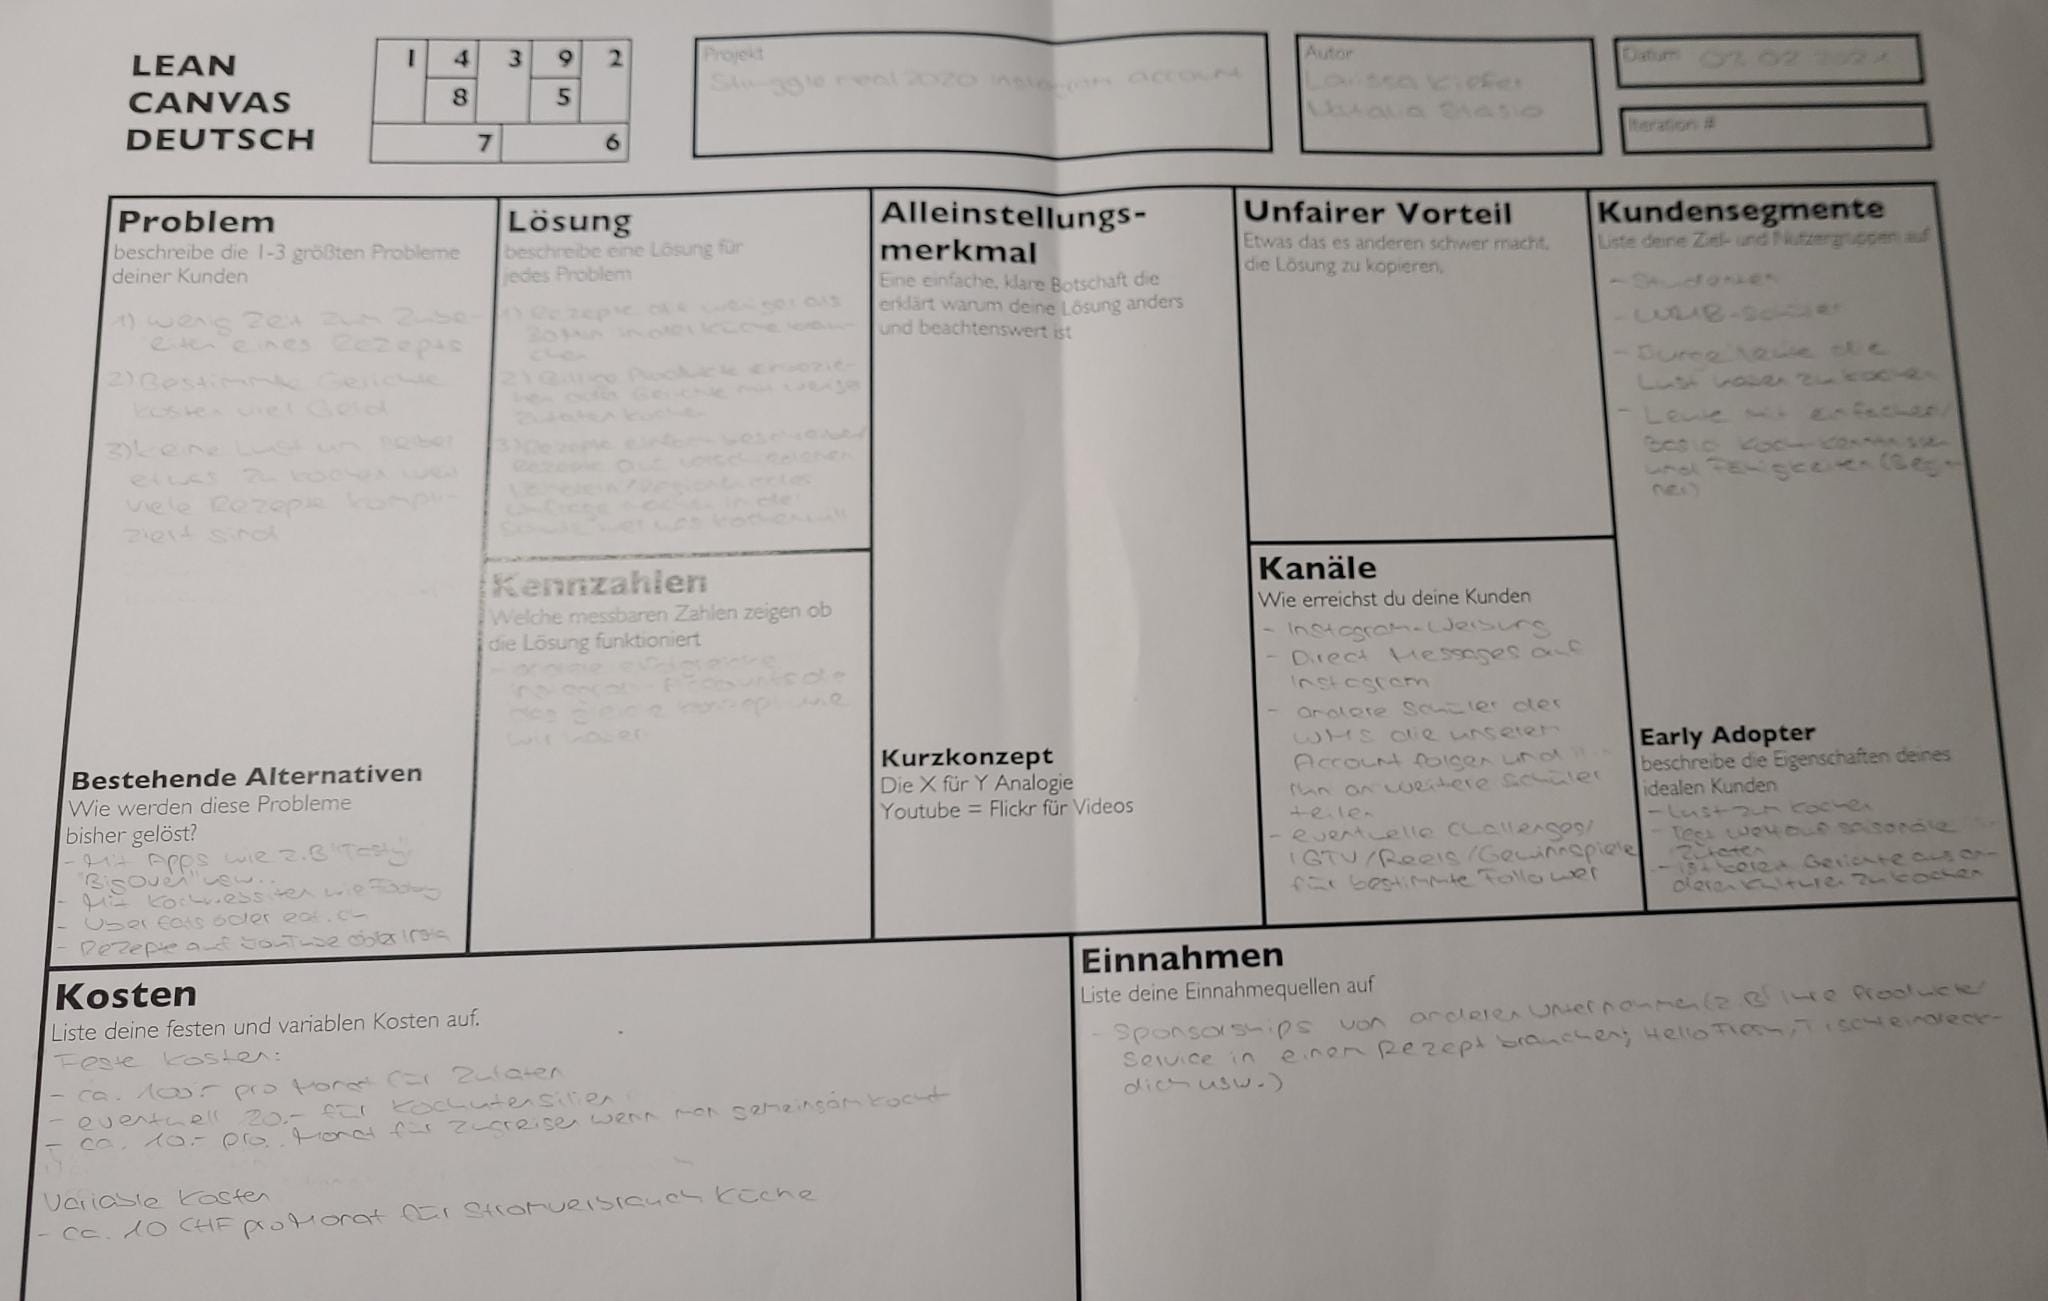 LEAN
CANVAS
DEUTSCH
1 4 3 9 2
8 5
7 6
Projekt
Struggle meal 2020 Instagram account
Autor
Larissa Kiefer
Natalia Stasio
Datum 02.02.2021
Iteration #
Problem
beschreibe die 1-3 größten Probleme
deiner Kunden
1) wenig Zeit zum Zube-
reiten eines Rezepts
2) Bestimmte Gerichte
kosten viel Geld
3) keine Lust um selber
etwas zu kochen weil
viele Rezepte kompli-
ziert sind
Bestehende Alternativen
Wie werden diese Probleme
bisher gelöst?
- Mit Apps wie z.B "Tasty"
"BigOven" usw..
- Mit Kochwebsiten wie Fooby
- Uber Eats oder eat.ch
- Rezepte auf YouTube oder Insta
Lösung
beschreibe eine Lösung für
jedes Problem
1) Rezepte die weniger als
in der Küche brau-
chen
2) Billige Produkte
oder Gerichte mit wenige
Zutaten kochen
3) Rezepte einfach beschreiben/
Rezepte aus verschiedenen
Ländern/
Umfrage machen in der
Schule wer was kochen will
Kennzahlen
Welche messbaren Zahlen zeigen ob
die Lösung funktioniert
- andere erfolgreiche
Instagram-Accounts die
das gleiche Konzept wie
wir haben
Alleinstellungs-
merkmal
Eine einfache, klare Botschaft die
erklärt warum deine Lösung anders
und beachtenswert ist
Kurzkonzept
Die X für Y Analogie
Youtube = Flickr für Videos
Unfairer Vorteil
Etwas das es anderen schwer macht,
die Lösung zu kopieren.
Kanäle
Wie erreichst du deine Kunden
- Instagram-Werbung
- Direct Messages auf
Instagram
- andere Schüler der
WMS die unseren
Account folgen und
ihn an weitere Schüler
teilen
- eventuelle Challenges/
IGTV/Reels/Gewinnspiele
für bestimmte Follower
Kundensegmente
Liste deine Ziel- und Nutzergruppen auf
- Studenten
- Schüler
- Junge Leute die
Lust haben zu kochen
- Leute mit einfachen/
Basic Kochkenntnissen
und Fähigkeiten (Begin-
ner)
Early Adopter
beschreibe die Eigenschaften deines
idealen Kunden
- Lust zum kochen
- legt Wert auf saisonale
Zutaten
- ist bereit Gerichte aus an-
deren Kulturen zu kochen
Kosten
Liste deine festen und variablen Kosten auf.
Feste Kosten:
- ca. 100.- pro Monat für Zutaten
- eventuell 20.- für Kochutensilien
- ca. 10.- pro Monat für Zugreisen wenn man gemeinsam kocht
Variable Kosten
- ca. 10 CHF pro Monat für Stromverbrauch Küche
Einnahmen
Liste deine Einnahmequellen auf
- Sponsorships von anderen Unternehmen (z.B ihre Produkte/
Service in einem Rezept brauchen; HelloFresh, Tischleindeck-
dich usw.)